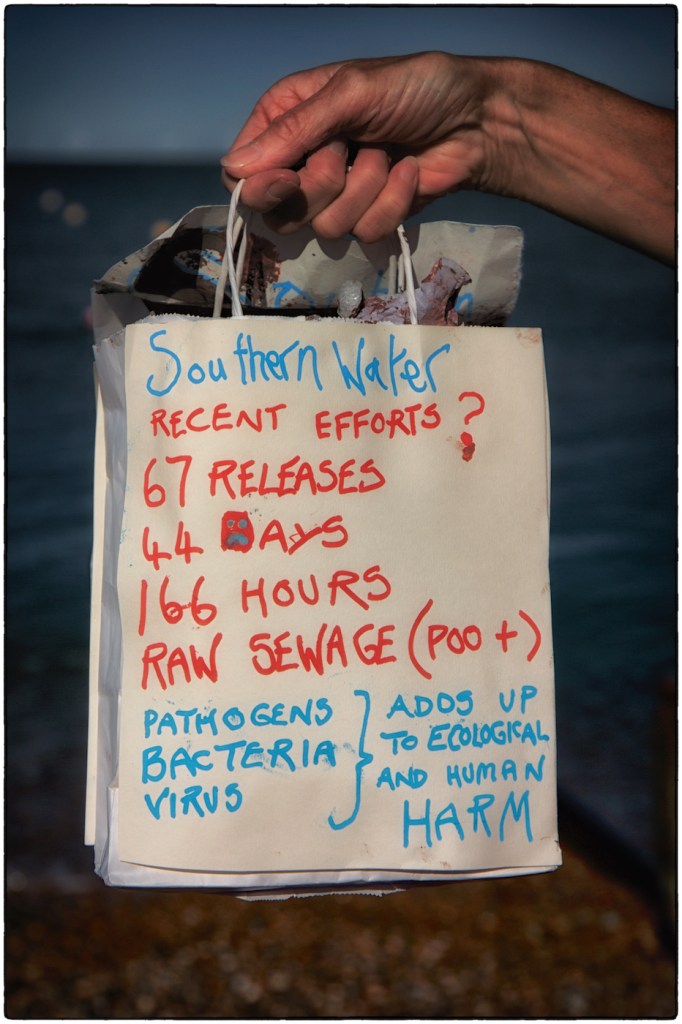 Southern Water
RECENT EFFORTS?
67 RELEASES
44 DAYS
166 HOURS
RAW SEWAGE (POO +)
PATHOGENS
BACTERIA
VIRUS
} ADDS UP
TO ECOLOGICAL
AND HUMAN
HARM